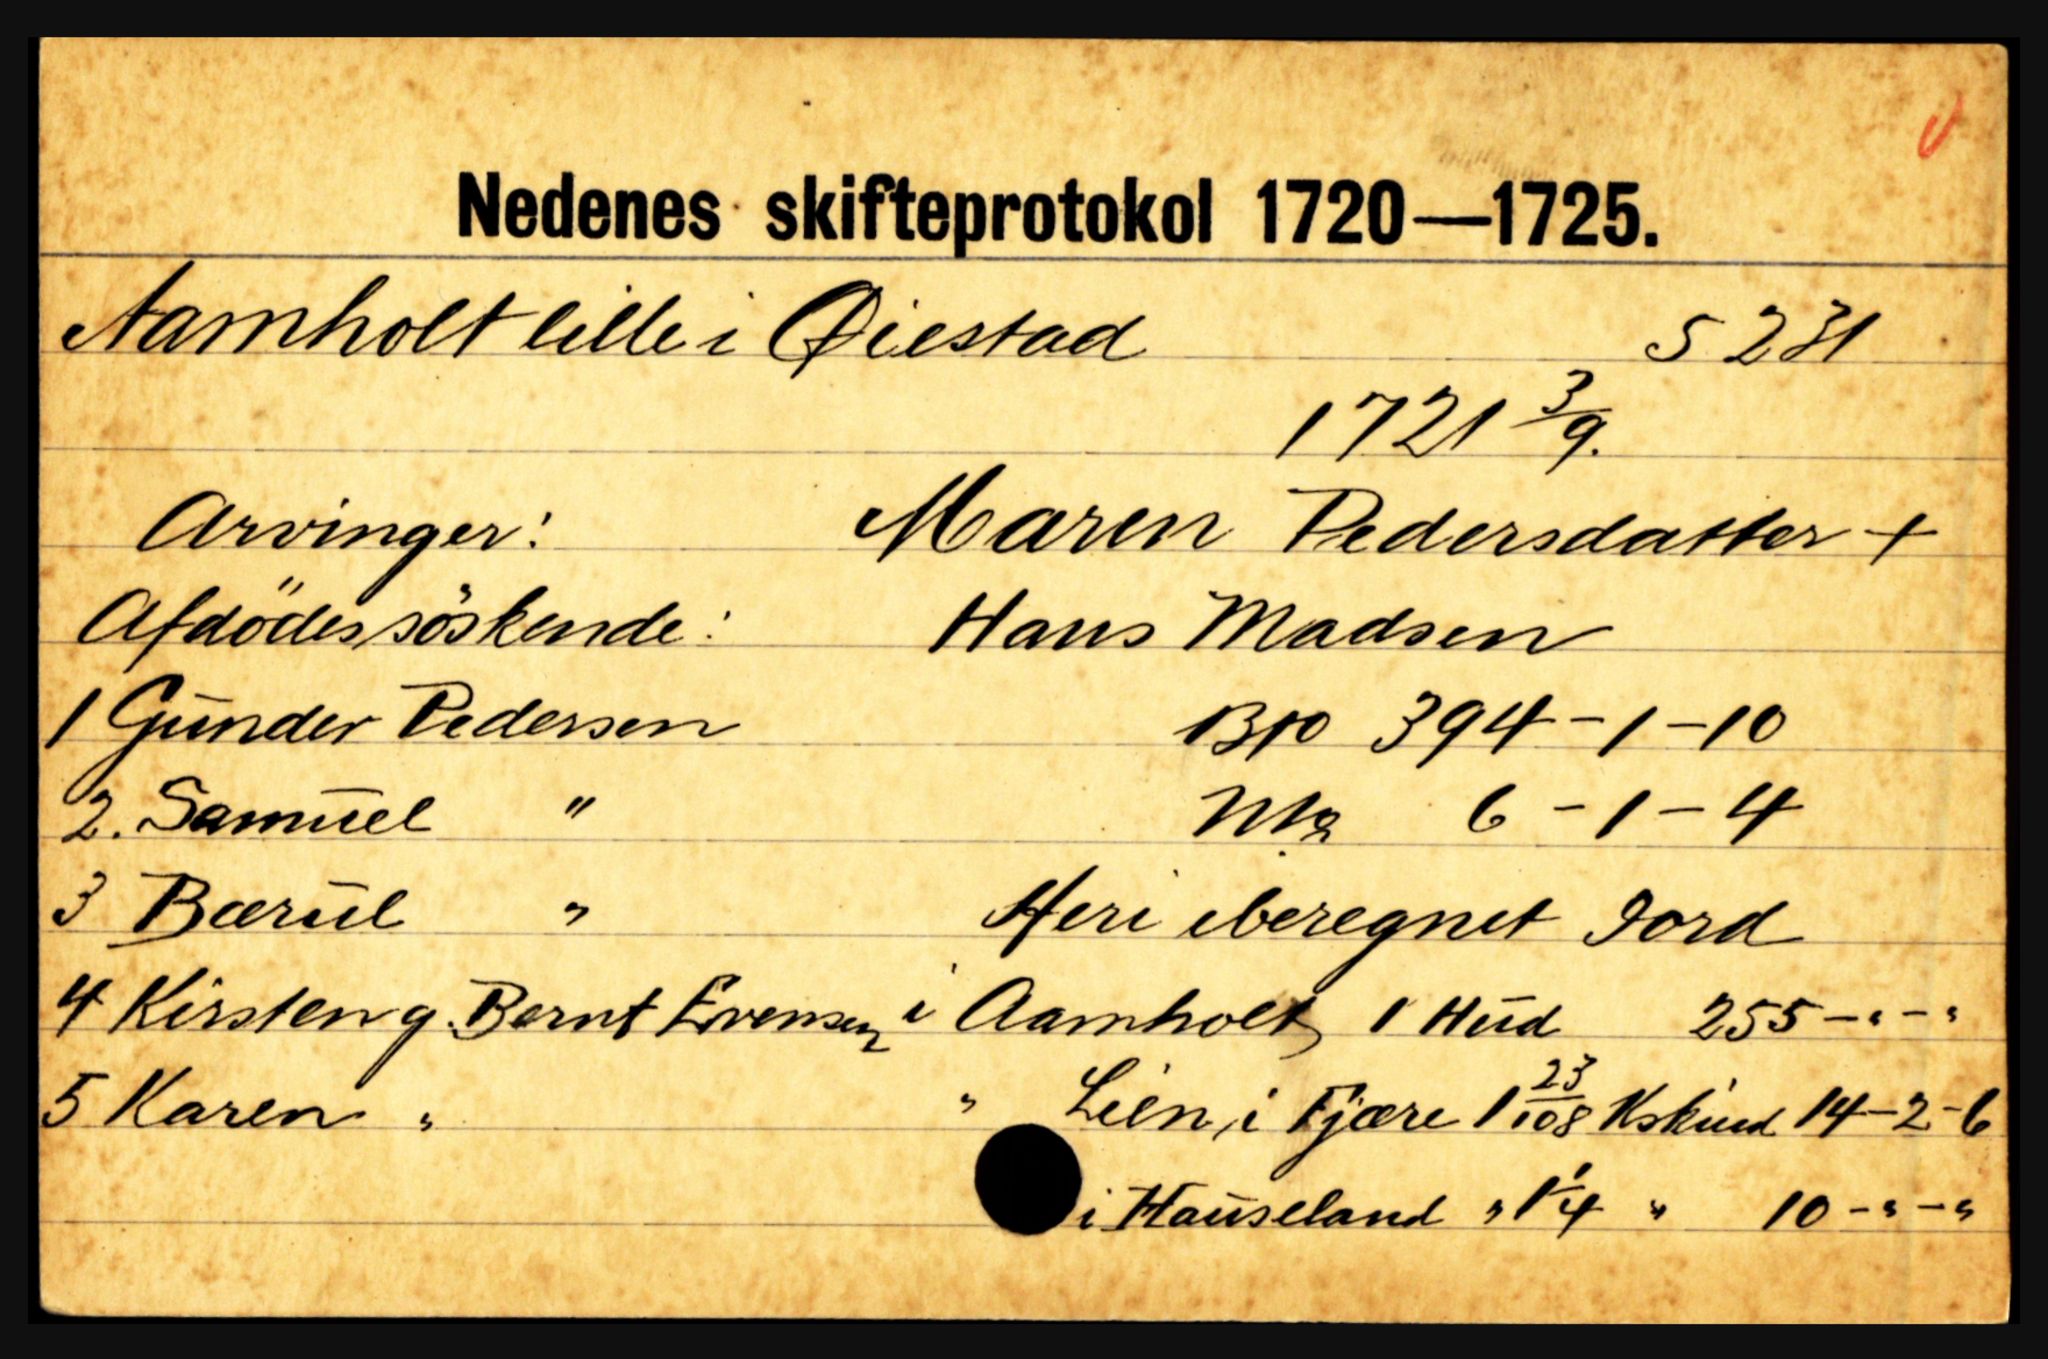 Nedenes skifteprotokol 1720—1725.
Aamholt lille i Øiestad S 231
1721 3/9.
Arvinger: Maren Pedersdatter +
Afdödes söskende: Hans Madsen
1 Gunder Pedersen Bro 394 - 1 - 10
2. Samuel " Na 6 - 1 - 4
3 Bærul " Heri iberegnet Jord
4 Kirsten g. Bernt Evensen i Aamholt 1 Hud 255 - " - "
5 Karen " " Lien i Fjære 1 23/108 Kskind 14 - 2 - 6
i Hauseland " 1 1/4 " 10 - " - "